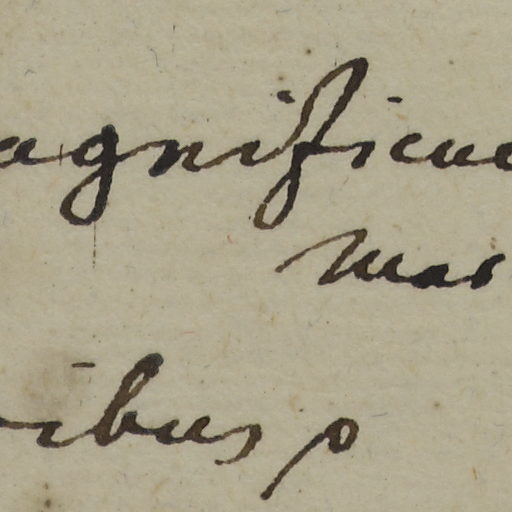 agnificu
mar
ibus p